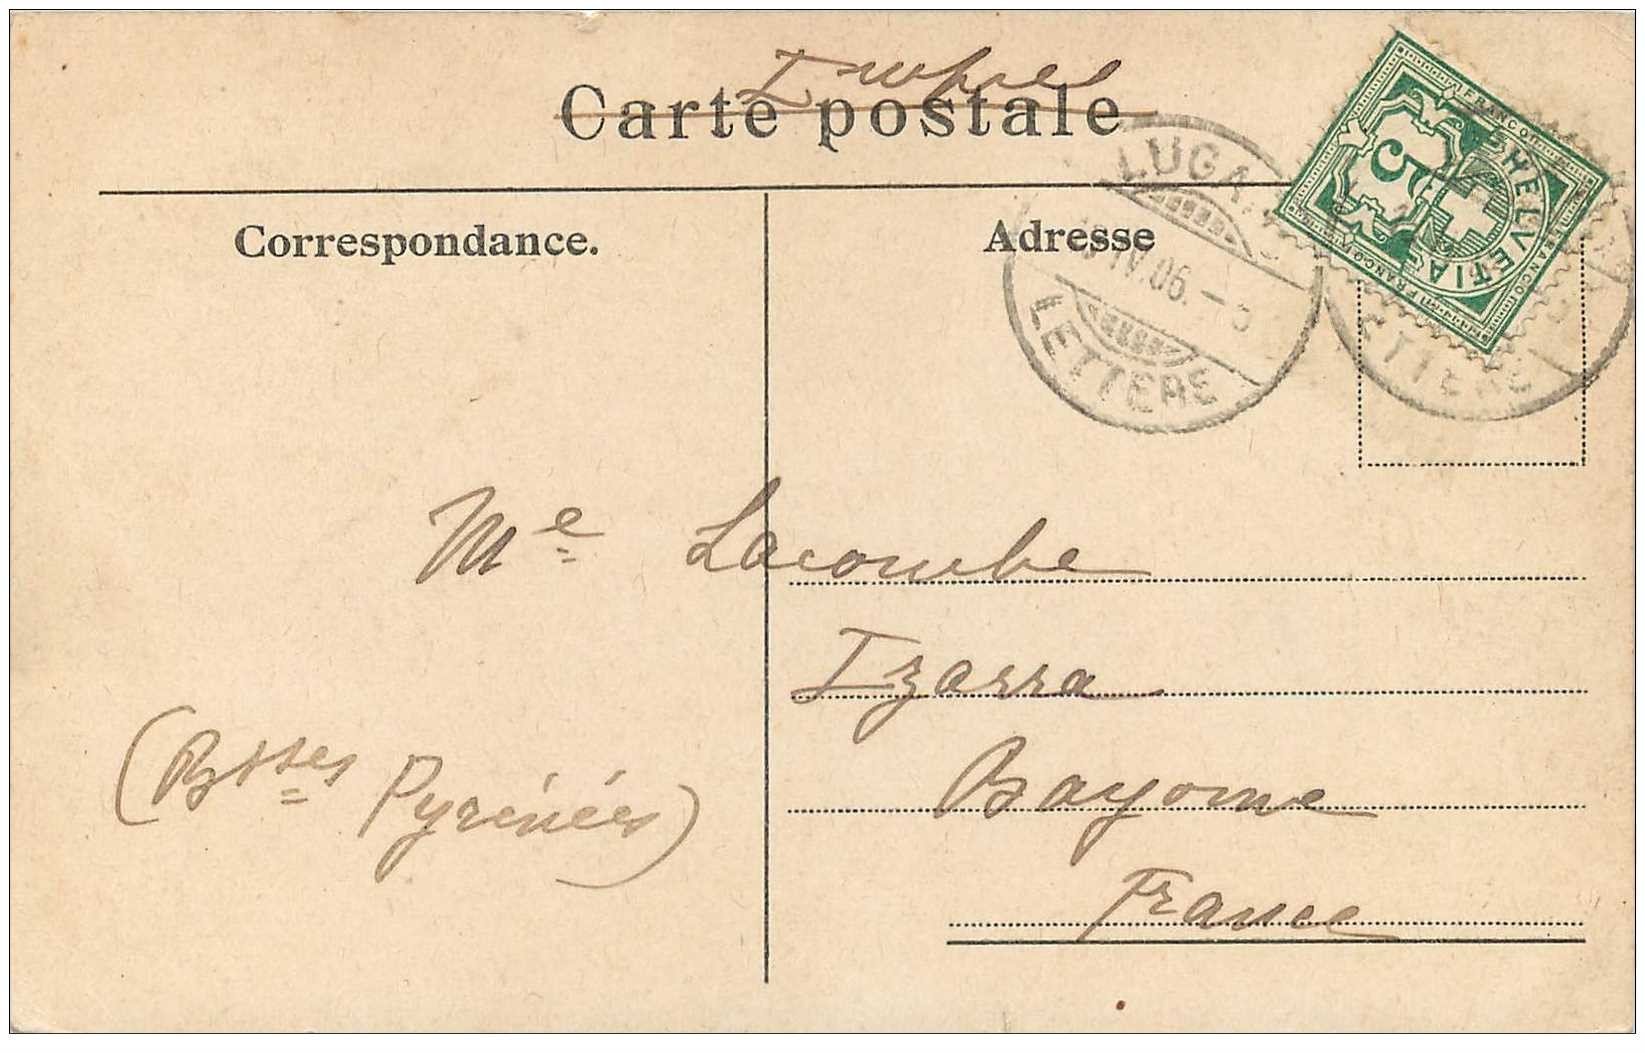 Imprimé
Carte postale
Correspondance.
Adresse
LUGANO
IV.06.
LETTERE
FRANCO
HELVETIA
5
LETTERE
Me Lacombe
Izarra
Bayonne
(Bsses Pyrénées)
France